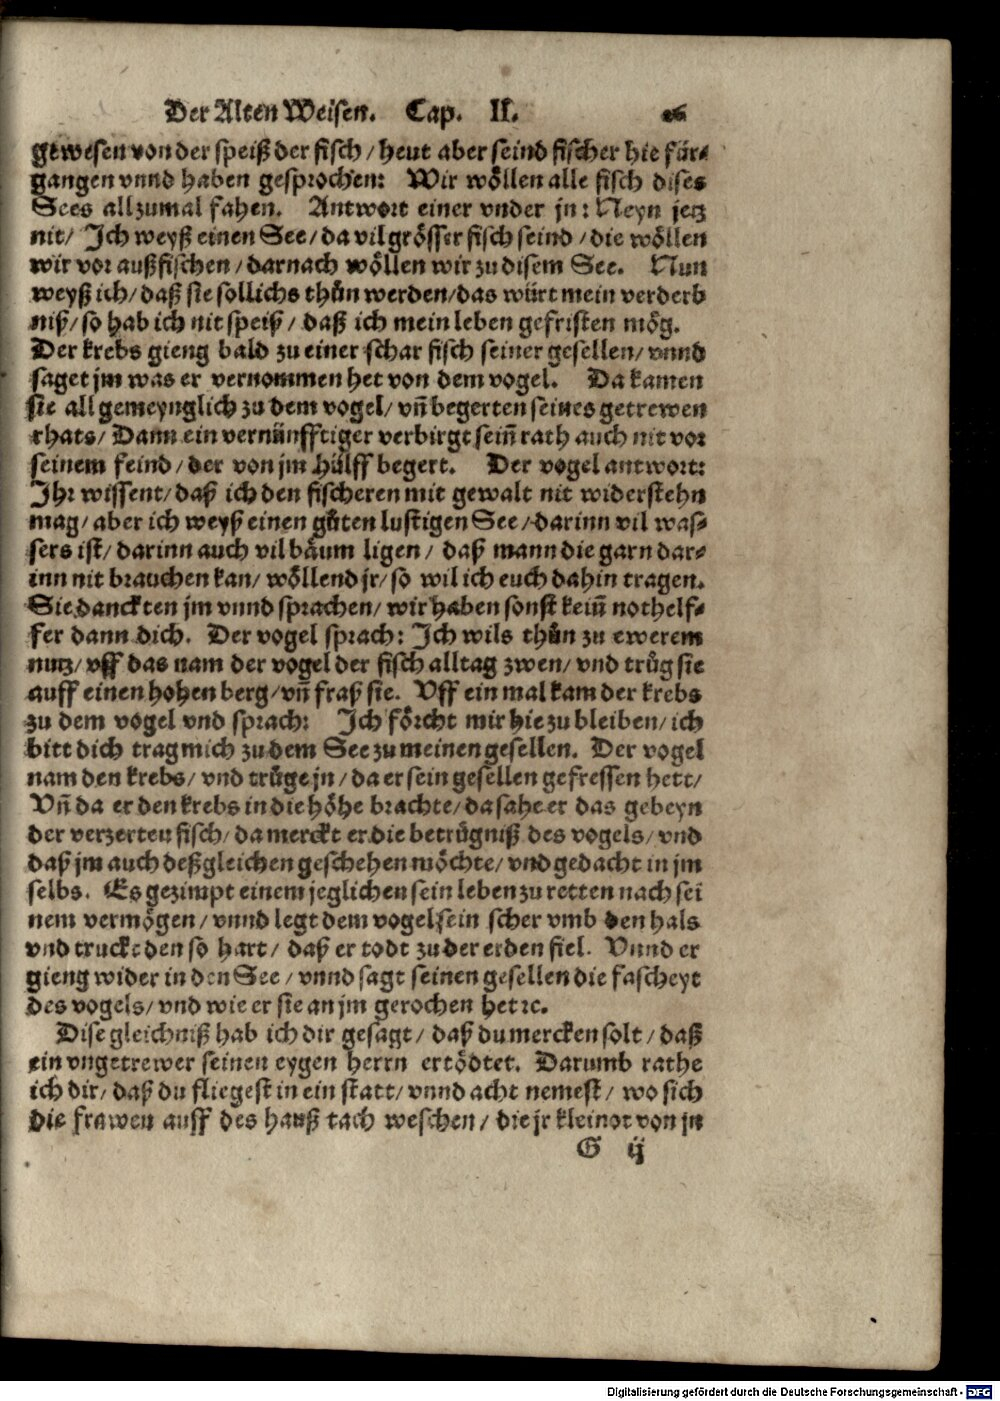 Der Alten Weisen. Cap. II. 26
gewesen von der speiß der fisch / heut aber seind fischer hie für⸗
gangen vnnd haben gesprochen: Wir wöllen alle fisch dises
Sees allzumal fahen. Antwort einer vnder jn: Neyn jetz
nit / Ich weyß einen See / da vil grösser fisch seind / die wöllen
wir vor außfischen / darnach wöllen wir zu disem See. Nun
weyß ich / daß sie sollichs thůn werden / das würt mein verderb
niß / so hab ich nit speiß / daß ich mein leben gefristen mög.
Der krebs gieng bald zu einer schar fisch seiner gesellen / vnnd
saget jm was er vernommen het von dem vogel. Da kamen
sie all gemeynglich zu dem vogel / vñ begerten seines getrewen
rhats / Dann ein vernünfftiger verbirgt seiñ rath auch nit vor
seinem feind / der von jm hülff begert. Der vogel antwort:
Ihr wissent / daß ich den fischeren mit gewalt nit widerstehn
mag / aber ich weyß einen gůten lustigen See / darinn vil was⸗
sers ist / darinn auch vil bäum ligen / daß mann die garn dar⸗
inn nit brauchen kan / wöllend jr / so wil ich euch dahin tragen.
Sie danckten jm vnnd sprachen / wir haben sonst keiñ nothelf⸗
fer dann dich. Der vogel sprach: Ich wils thůn zu ewerem
nutz / vff das nam der vogel der fisch alltag zwen / vnd trůg sie
auff einen hohen berg / vñ fraß sie. Vff ein mal kam der krebs
zu dem vogel vnd sprach: Ich förcht mir hie zu bleiben / ich
bitt dich trag mich zu dem See zu meinen gesellen. Der vogel
nam den krebs / vnd trůge jn / da er sein gesellen gefressen hett /
Vñ da er den krebs in die höhe brachte / da sahe er das gebeyn
der verzerten fisch / da merckt er die betrügniß des vogels / vnd
daß jm auch deßgleichen geschehen möchte / vnd gedacht in jm
selbs. Es gezimpt einem jeglichen sein leben zu retten nach sei
nem vermögen / vnnd legt dem vogel sein scher vmb den hals
vnd truckt den so hart / daß er todt zu der erden fiel. Vnnd er
gieng wider in den See / vnnd sagt seinen gesellen die fascheyt
des vogels / vnd wie er sie an jm gerochen het ꝛc.
Dise gleichniß hab ich dir gesagt / daß du mercken solt / daß
ein vngetrewer seinen eygen herrn ertödtet. Darumb rathe
ich dir / daß du fliegest in ein statt / vnnd acht nemest / wo sich
die frawen auff des hauß tach weschen / die jr kleinot von jn
G ij
Digitalisierung gefördert durch die Deutsche Forschungsgemeinschaft - DFG